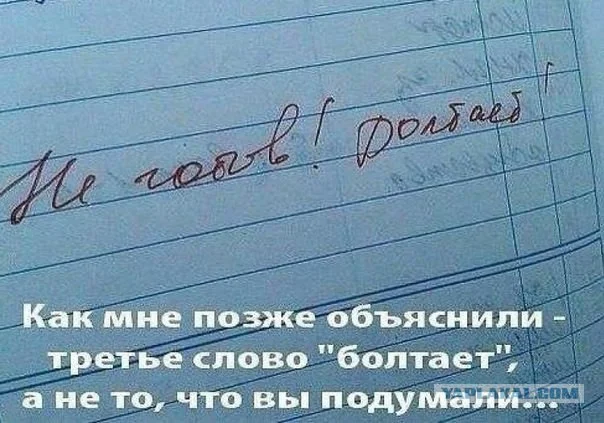 Не готов! Болтает!
Как мне позже объяснили -
третье слово "болтает",
а не то, что вы подумали...
YAPLAKAL.COM